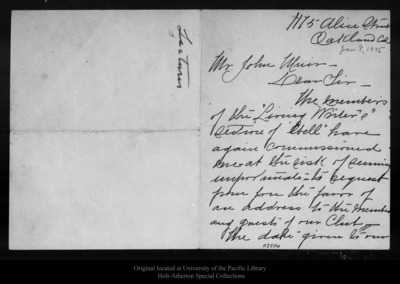 Lectures
1175 Alice Street
Oakland Cal
Jan 8, 1895
Mr. John Muir—
Dear Sir—
The members
of the "Living Writer's"
section of "Ebell" have
again commissioned
me at the risk of seeming
importunate to request
from you the favor of
an address to the members
and guests of our Club—
The date given to our
Original located at University of the Pacific Library
Holt-Atherton Special Collections